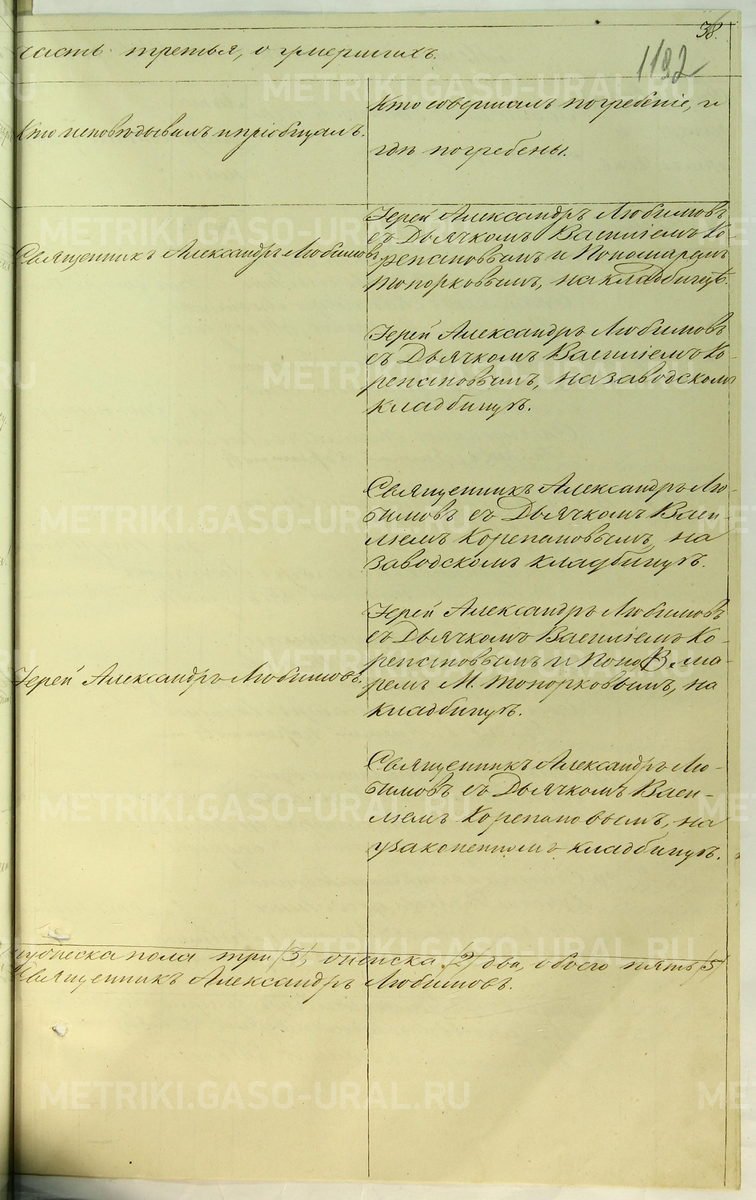 38.
часть третья, о умершихъ.
1192
Кто исповѣдывалъ и пріобщалъ.
Кто совершалъ погребеніе, и
гдѣ погребены.
Священникъ Александръ Любимовъ
Іерей Александръ Любимовъ
съ Дьячкомъ Василіемъ Ко-
репановымъ и Пономаремъ
Топорковымъ, на кладбищѣ.
Іерей Александръ Любимовъ
съ Дьячкомъ Василіемъ Ко-
репановымъ, на заводскомъ
кладбищѣ.
Священникъ Александръ Лю-
бимовъ съ Дьячкомъ Васи-
ліемъ Корепановымъ, на
заводскомъ кладбищѣ.
Іерей Александръ Любимовъ.
Іерей Александръ Любимовъ
съ Дьячкомъ Василіемъ Ко-
репановымъ и Понома-
ремъ М. Топорковымъ, на
кладбищѣ.
Священникъ Александръ Лю-
бимовъ съ Дьячкомъ Васи-
ліемъ Корепановымъ, на
узаконенномъ кладбищѣ.
мужеска пола три /3/, женска /2/ два, обоего пять /5/
Священникъ Александръ Любимовъ.
METRIKI.GASO-URAL.RU